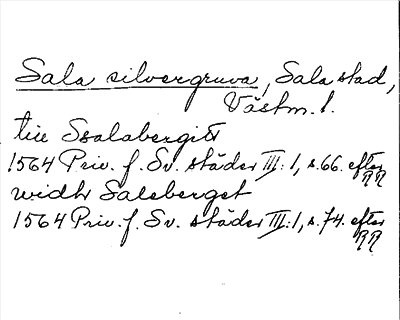 Sala silvergruva, Sala stad,
Västm. l.
till Ssalabergitt
1564 Priv. f. Sv. städer III:1, s. 66. efter
RR
widhr Saleberget
1564 Priv. f. Sv. städer III:1, s. 74. efter
RR